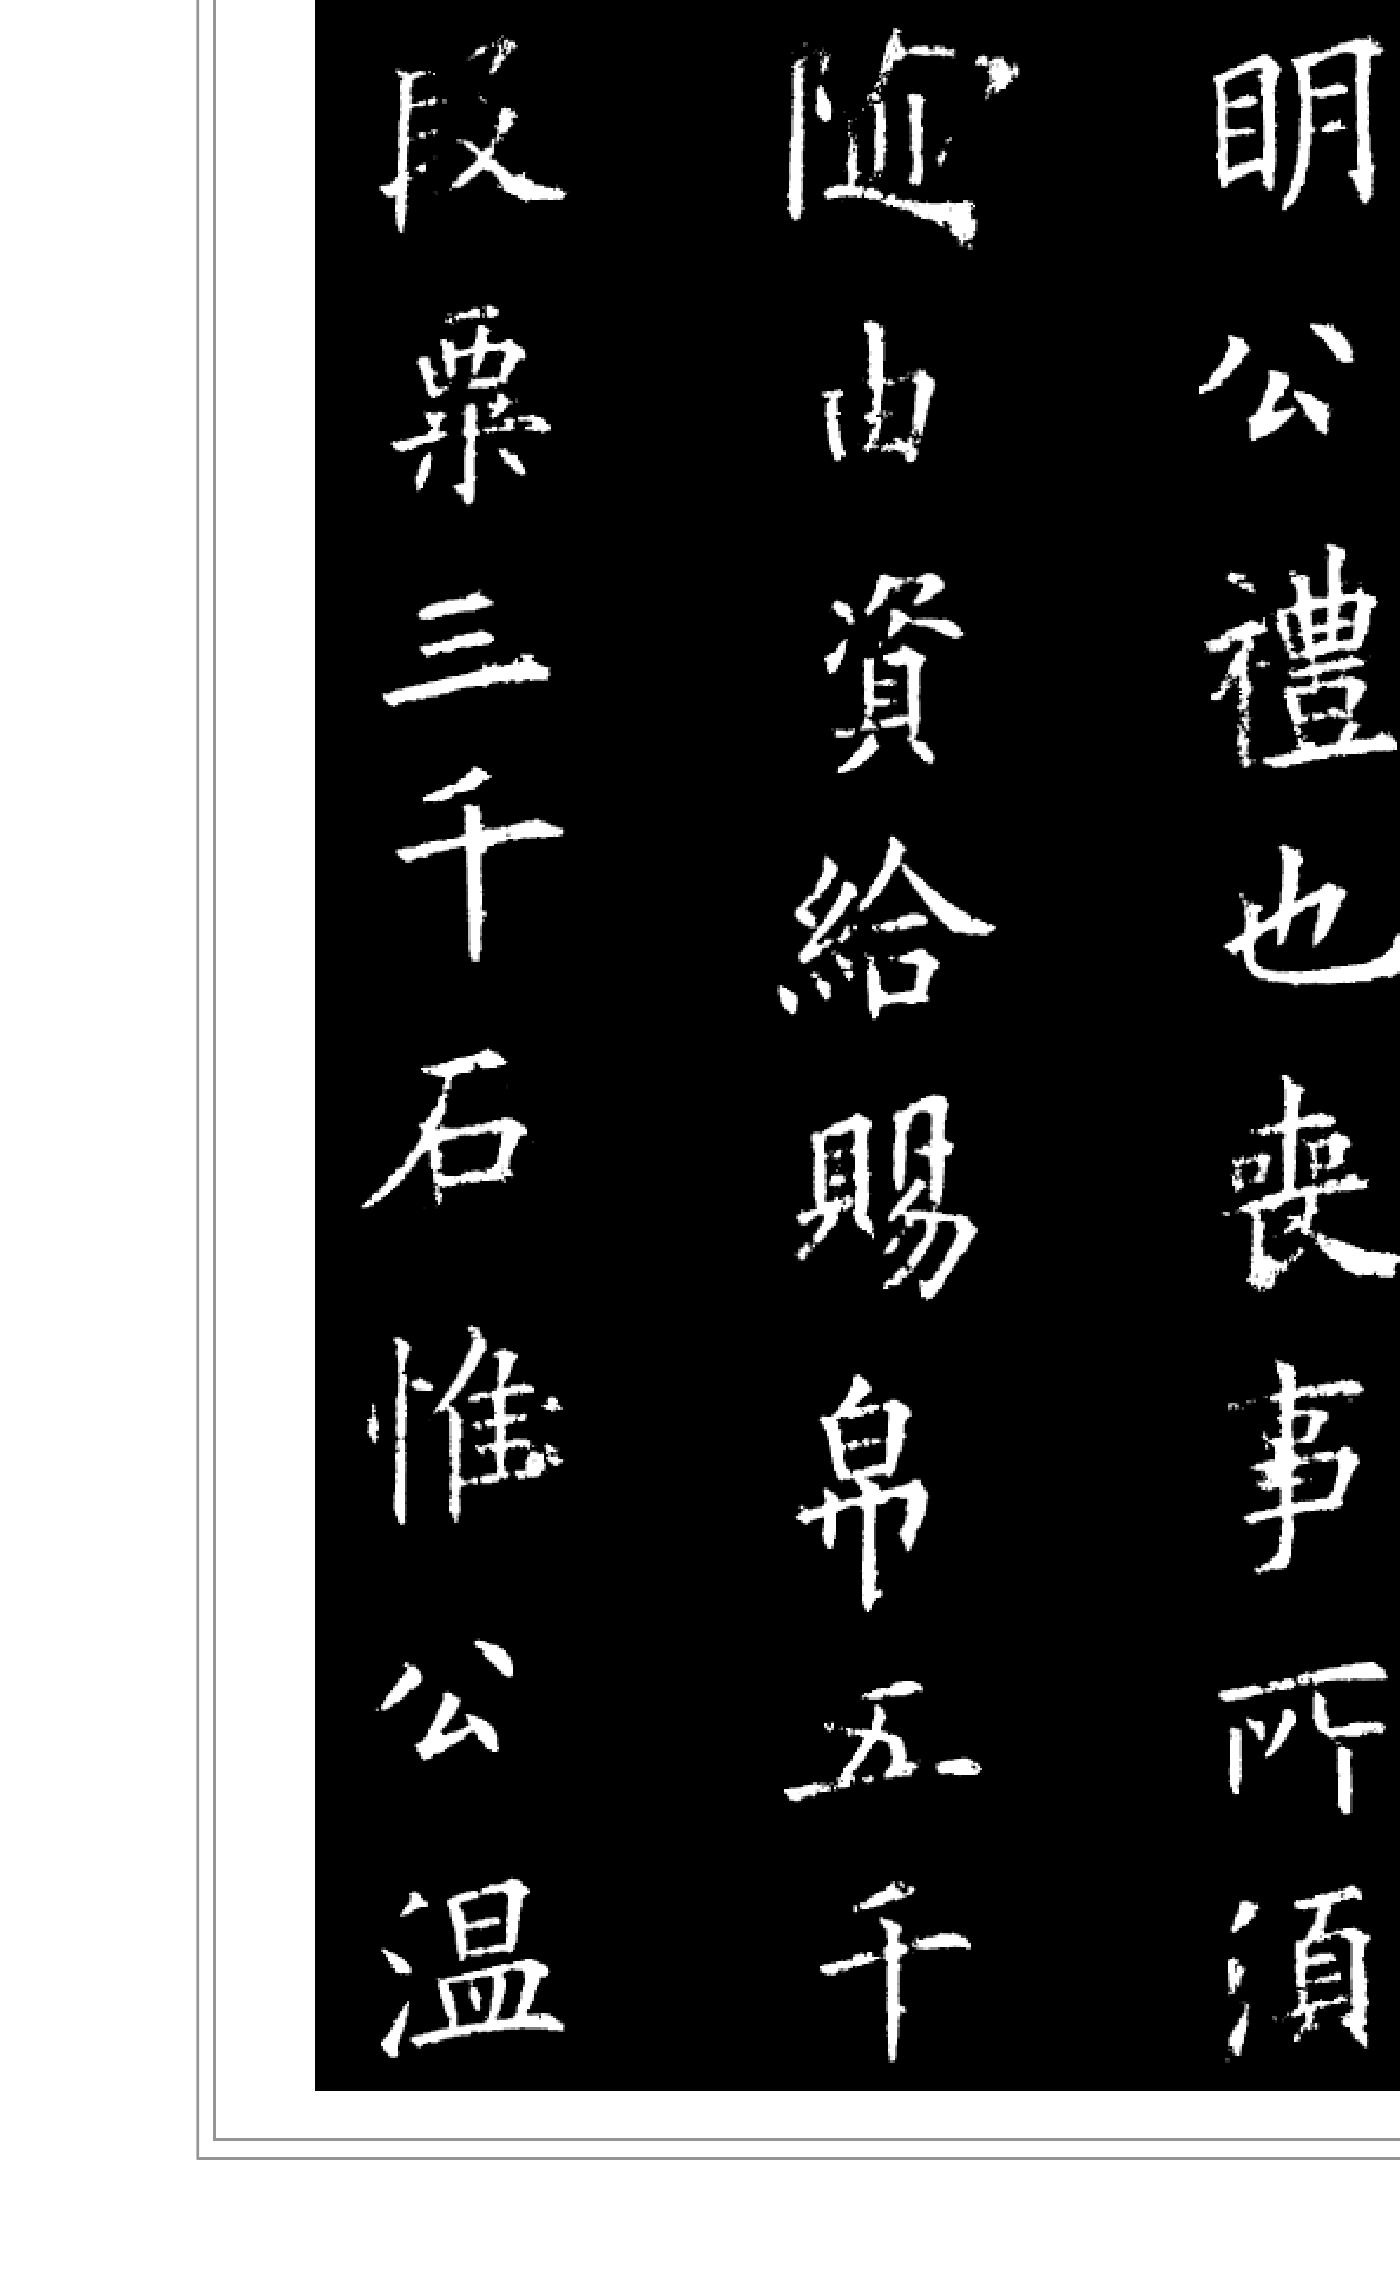 明公禮也喪事所須
随由資給賜帛五千
段粟三千石惟公温